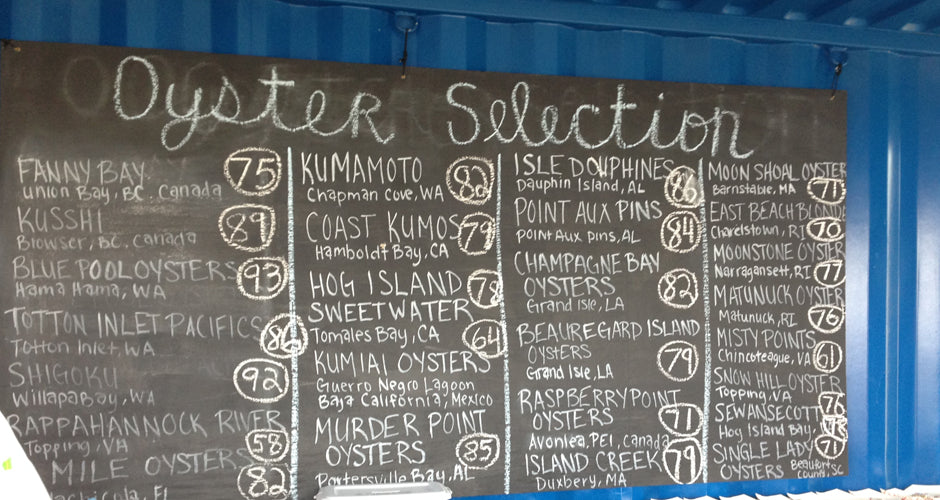 Oyster Selection
FANNY BAY 75
Union Bay, BC. Canada
KUSSHI 89
Blowser, BC, Canada
BLUE POOL OYSTERS 93
Hama Hama, WA
TOTTON INLET PACIFICS 86
Totton Inlet, WA
SHIGOKU 92
Willapa Bay, WA
RAPPAHANNOCK RIVER 58
Topping, VA
MILE OYSTERS 82
FL
KUMAMOTO 82
Chapman Cove, WA
COAST KUMOS 79
Humboldt Bay, CA
HOG ISLAND 78
SWEETWATER
Tomales Bay, CA 64
KUMIAI OYSTERS
Guerro Negro Lagoon
Baja California, Mexico
MURDER POINT
OYSTERS 85
Portersville Bay, AL
ISLE DOUPHINES 86
Dauphin Island, AL
POINT AUX PINS 84
Point Aux Pins, AL
CHAMPAGNE BAY
OYSTERS 82
Grand Isle, LA
BEAUREGARD ISLAND
OYSTERS 79
Grand Isle, LA
RASPBERRY POINT
OYSTERS 71
Avonlea, PEI, Canada
ISLAND CREEK 79
Duxbery, MA
MOON SHOAL OYSTER
Barnstable, MA 71
EAST BEACH BLONDE
Charelstown, RI 70
MOONSTONE OYSTER
Narragansett, RI 77
MATUNUCK OYSTER
Matunuck, RI 76
MISTY POINTS
Chincoteague, VA 61
SNOW HILL OYSTER
Topping, VA
SEWANSECOTT
Hog Island Bay,
SINGLE LADY 71
OYSTERS Beaufort
County, SC